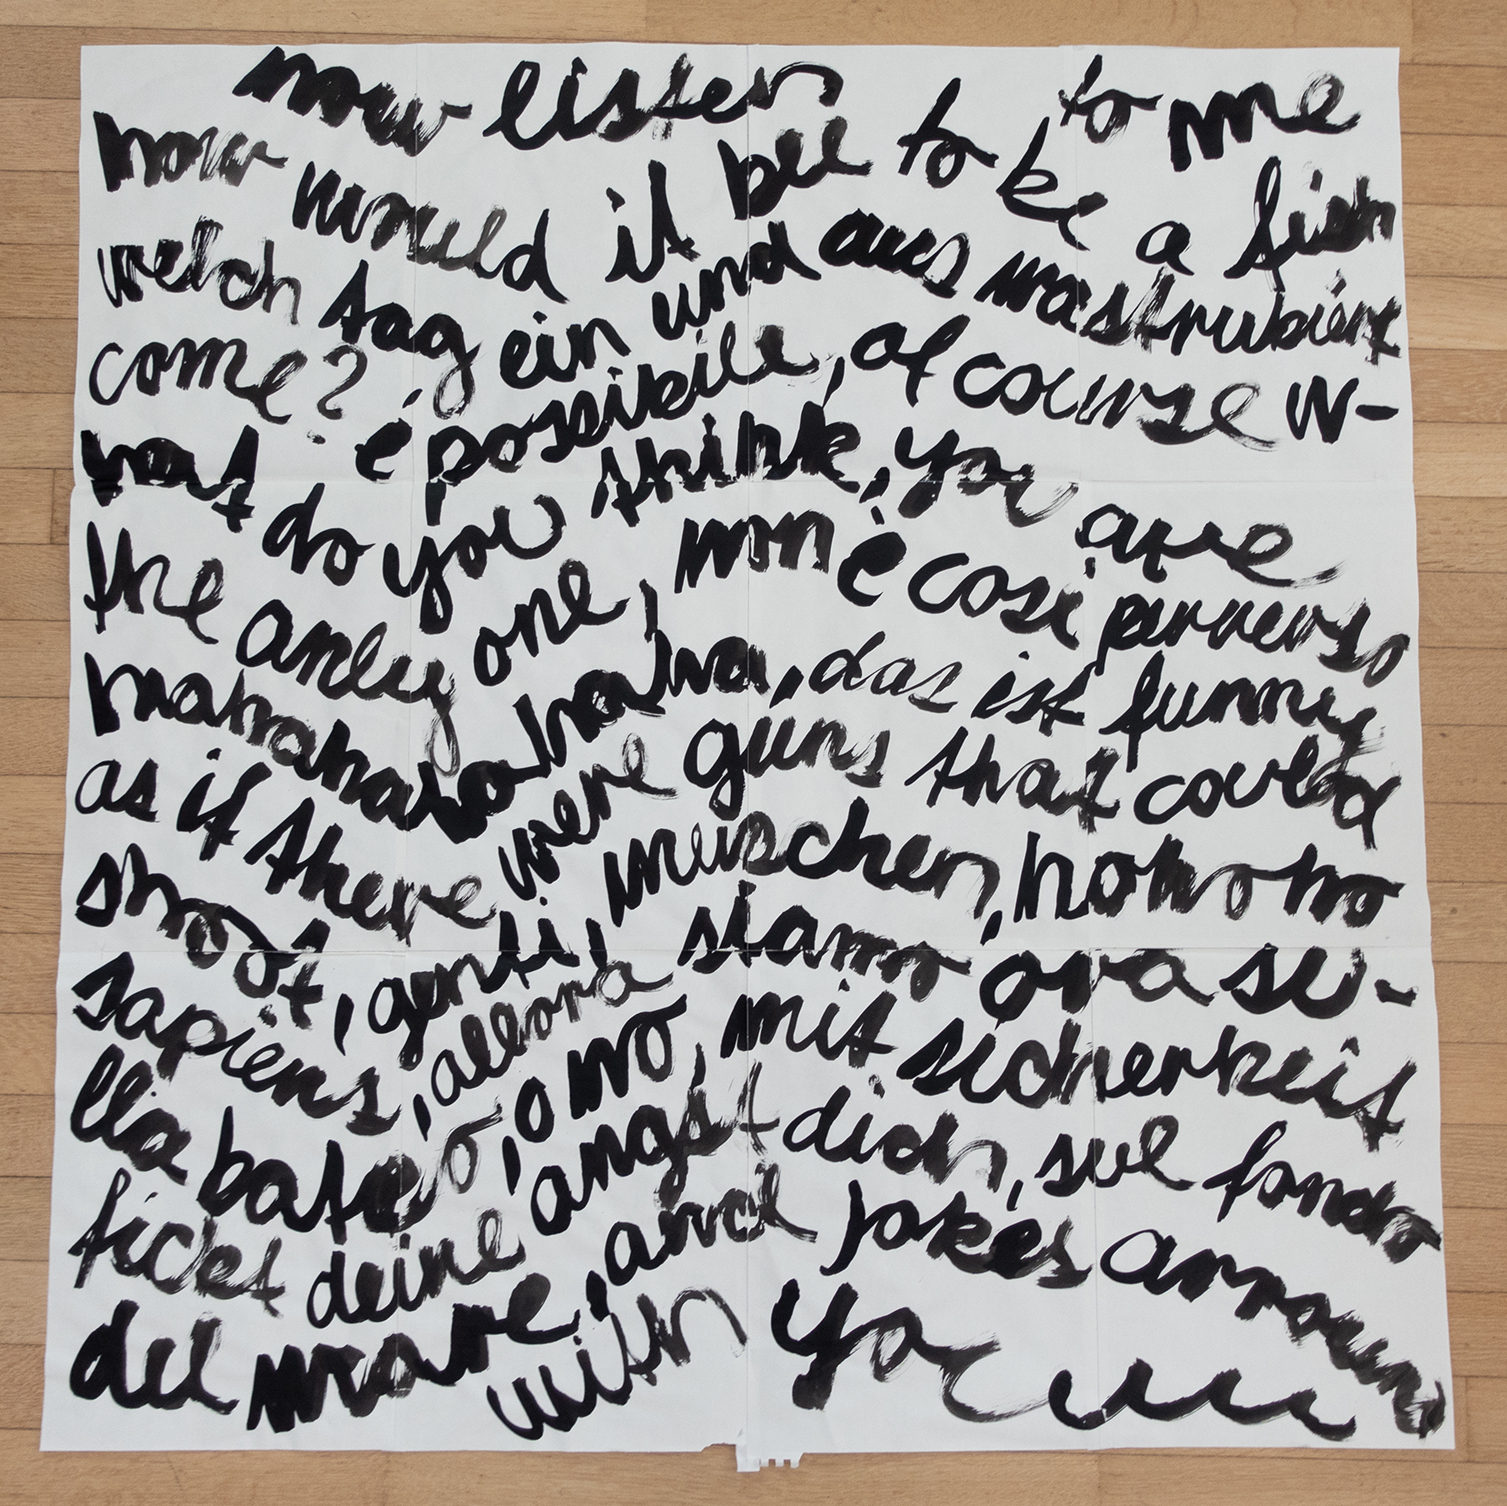 now listen to me
how would it bee to be a fish
welch tag ein und aus mastrubiert
come? è possibile, of course w-
hat do you think, you are
the only one, non è così perverso
hahahahahahaha, das ist funny
as if there were guns that could
shoot, genti, muschen, hohoho
sapiens, allora siamo ora su-
lla bateo, omo, mit sicherkeit
ficket deine angst dich, sul fondo
del mare, and jokes arround
with you